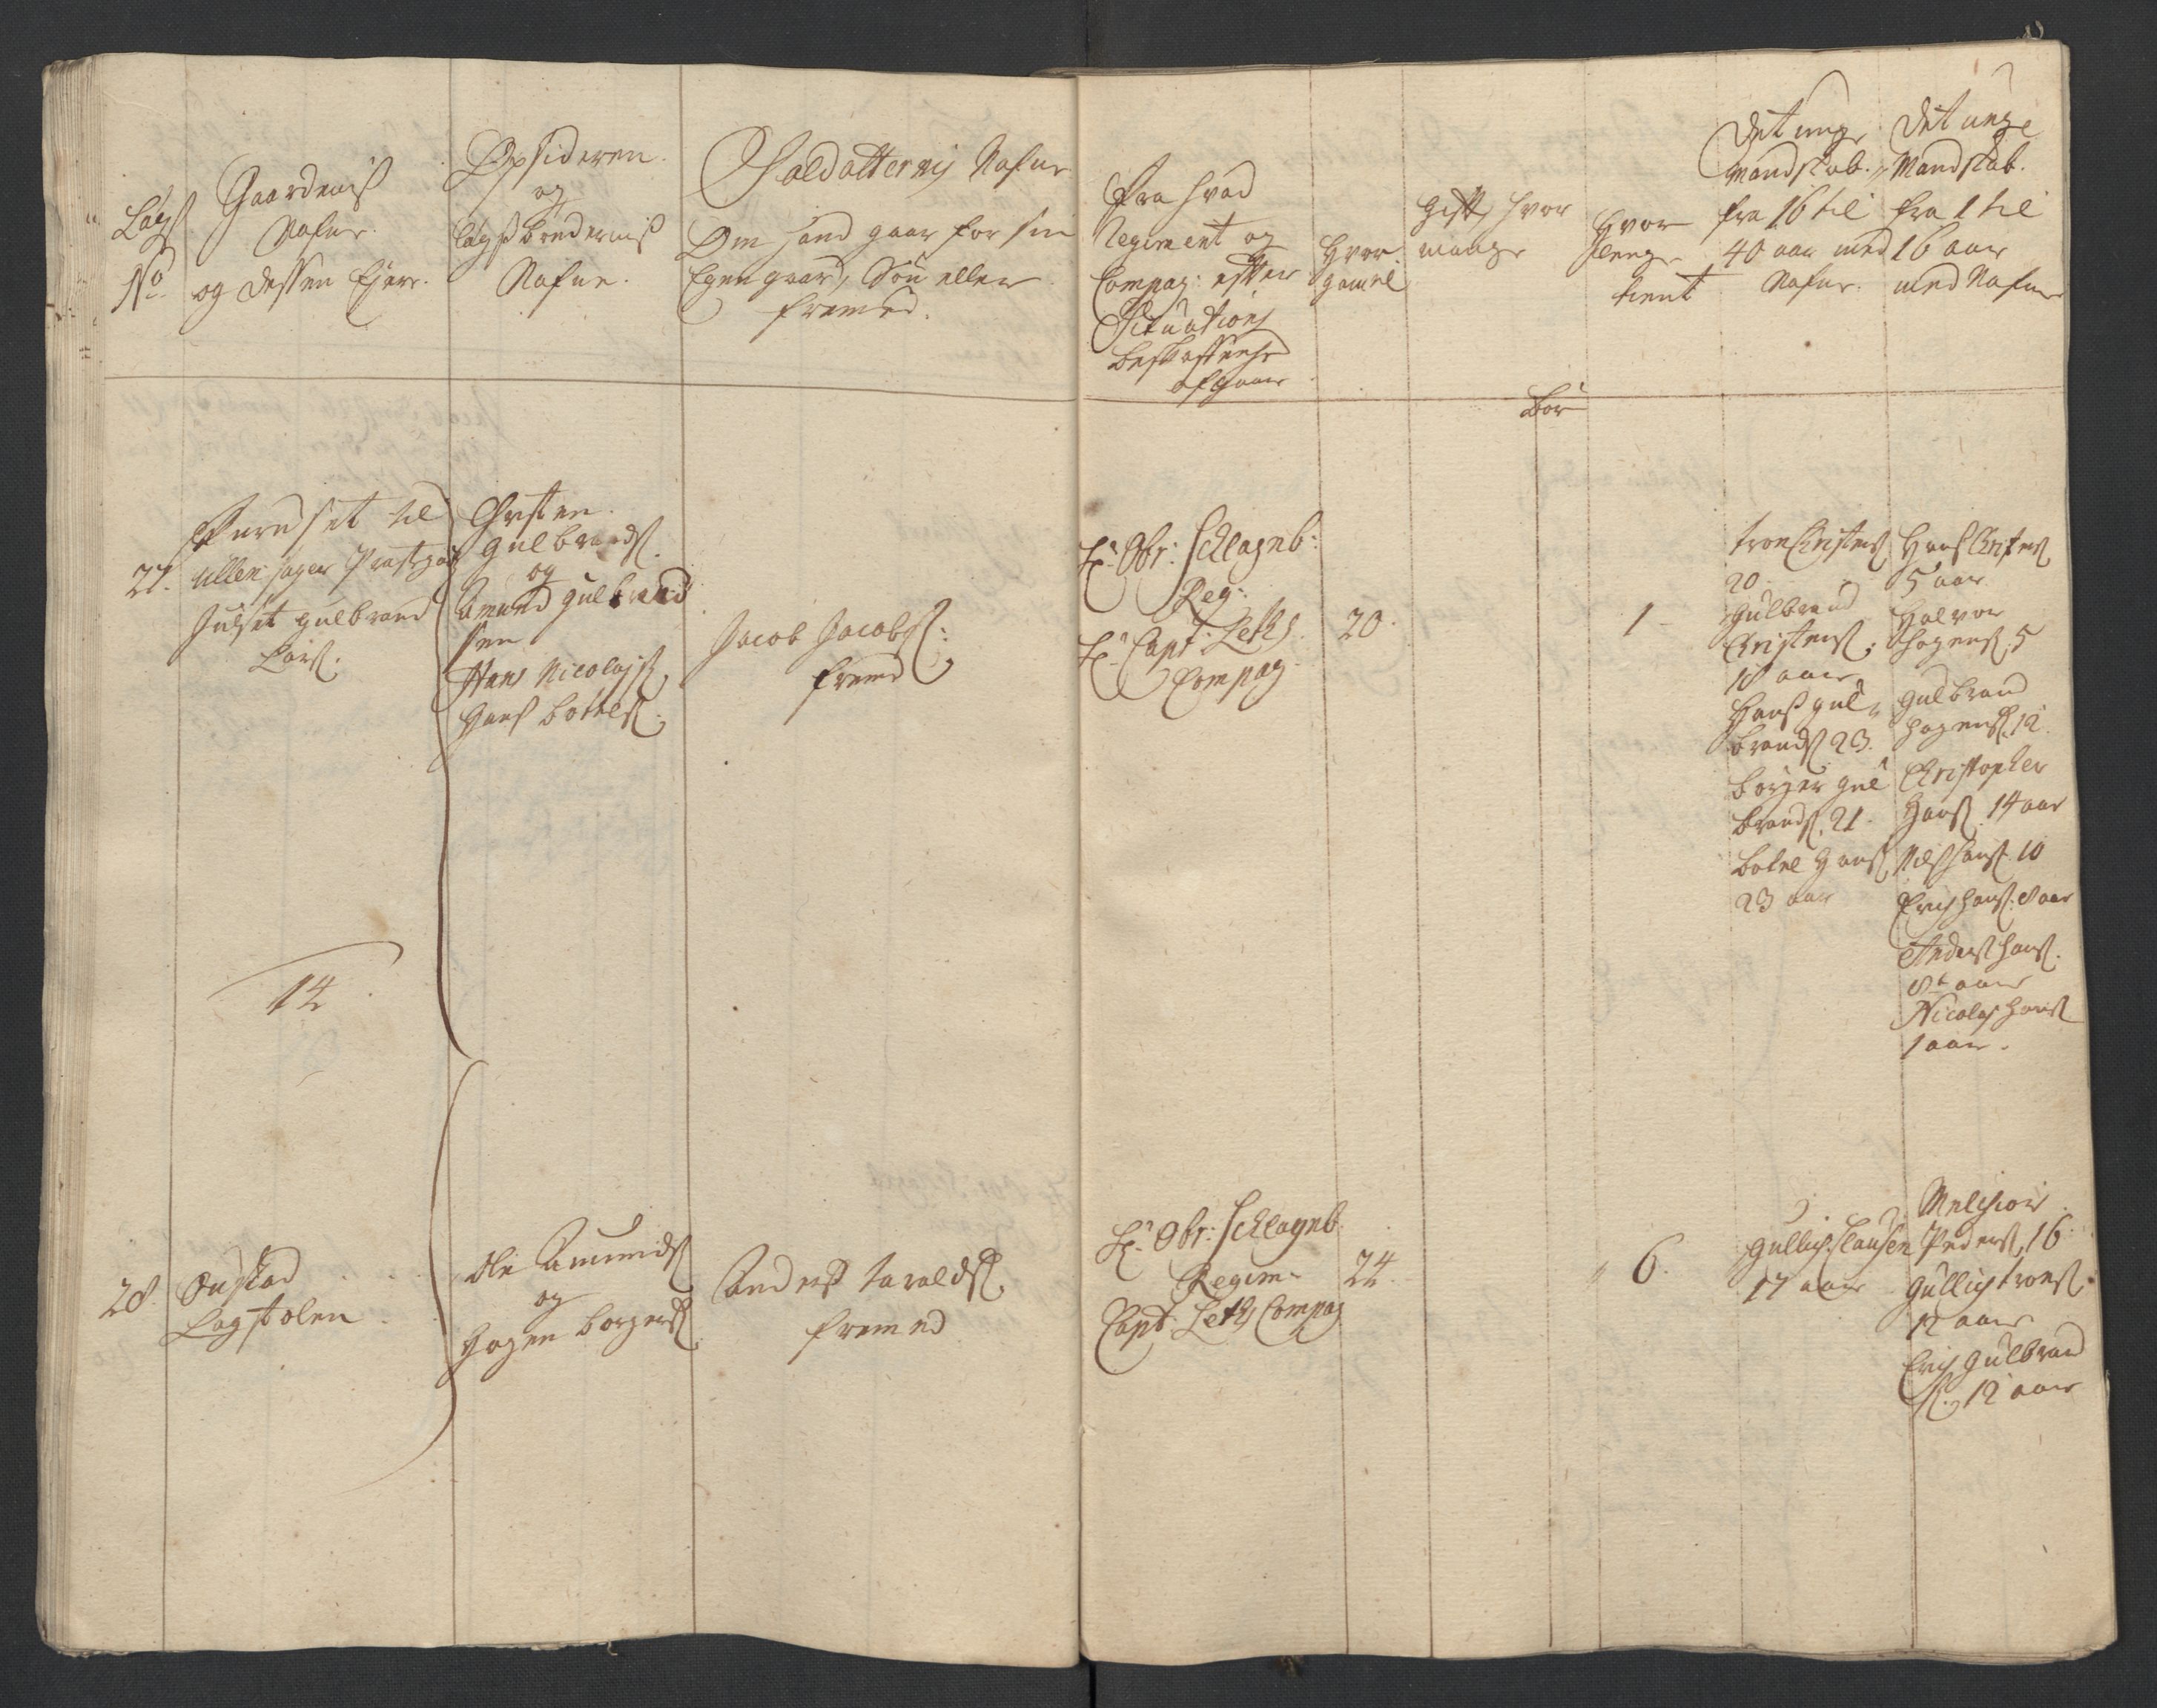 Lægs
No
Gaardenis
Nafne.
og dessen Ejere.
Opsideren
og
lægsbrødernis
Nafne.
Soldatternis Nafne
Om hand gaar for sin
Egen gaard, Søn eller
fremed.
Fra hvad
Regiment og
Compag: efter
Situations
beskaffenhed
afgaar
Hvor
gamel
Gift, hvor
mange
Bør
Hvor
lenge
tient
Det unge
Mandskab
fra 16 til
40 aar med
Nafne.
Det unge
Mandskab.
fra 1 til
16 aar
med Nafne
27.
Furuset til
Ullensager Præstgaard
Julset gulbrand
Larss:
Christen
Gulbrands:
og
Amund gulbrand
sen
Hans Nicolajs:
Hans botels:
Jacob Jacobs:
fremd
Hr. Obr: Schlagnb:
Reg:
Hr. Capt: Leths
Compag
20.
1
tron Christens:
20
Gulbrand
Christens:
18 aar
Hans gul
brands: 23.
børger gul
brands: 21
botel Hans:
23 aar
Hans Christens:
5 aar
Halvor
hagens: 5
gulbrand
hagens: 12
Christopher
Hans: 14 aar
Nils hans: 10
Erich hans: 8 aar
Anders hans:
8t aar
Nicolaj hans:
1 aar.
14
28.
Onstad
Lagstolen
Ole Amunds:
og
Hagen borgers:
Anders taralds:
fremed
Hr. Obr: Schlagnb
Regim-
Capt: Leths Compag
24.
6.
Gullich Clausen
17 aar
Melchior
Peders: 16
Gullich trons:
12 aar
Erich Gulbrand
s: 12 aar